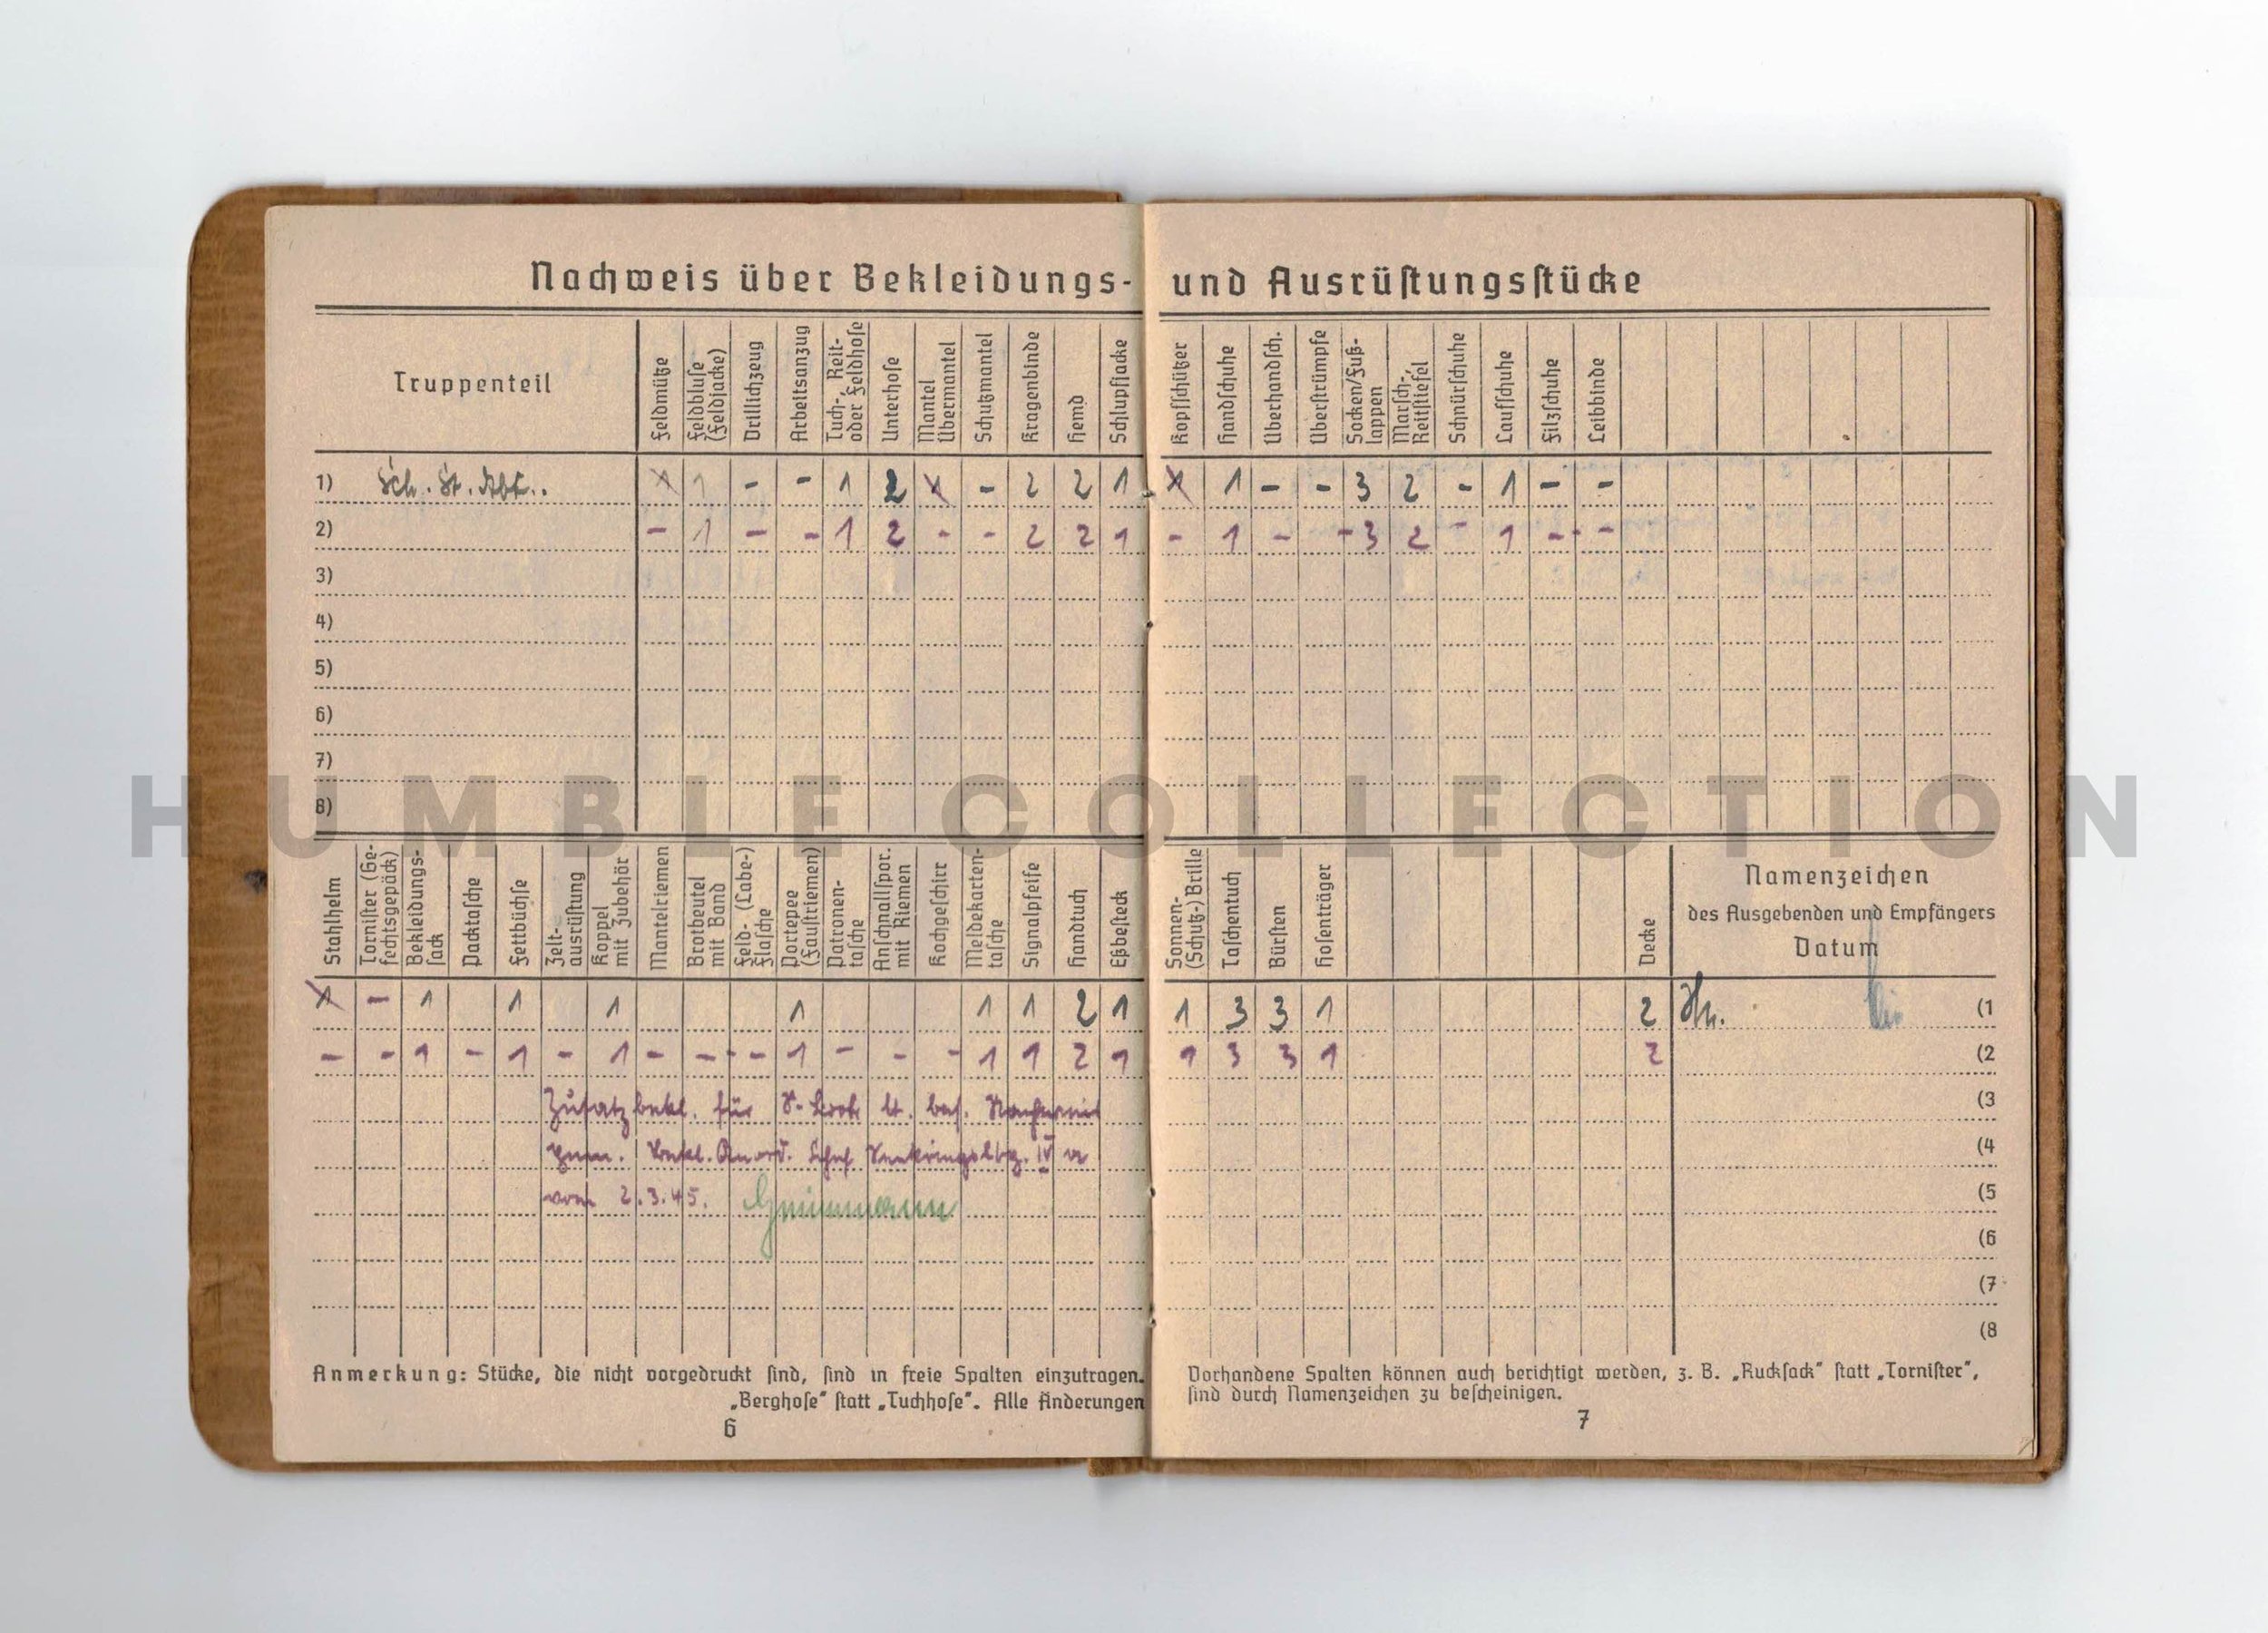 Nachweis über Bekleidungs- und Ausrüstungsstücke
Truppenteil
Feldmütze
Feldbluse (Feldjacke)
Drillichzeug
Arbeitsanzug
Tuch-, Reit- oder Feldhose
Unterhose
Mantel Übermantel
Schutzmantel
Kragenbinde
Hemd
Schlupfjacke
Kopfschützer
Handschuhe
Überhandsch.
Überstrümpfe
Socken/Fußlappen
Marsch-, Reitstiefel
Schnürschuhe
Laufschuhe
Filzschuhe
Leibbinde
1) Sch. St. Abt. X 1 - - 1 2 X - 2 2 1 X 1 - - 3 2 - 1 - -
2) - 1 - - 1 2 - - 2 2 1 - 1 - - 3 2 - 1 - -
3)
4)
5)
6)
7)
8)
HUMBLE COLLECTION
Stahlhelm
Tornister (Gefechtsgepäck)
Bekleidungssack
Packtasche
Fettbüchse
Zeltausrüstung
Koppel mit Zubehör
Mantelriemen
Brotbeutel mit Band
Feld- (Labe-) flasche
Portepee (Faustriemen)
Patronentasche
Anschnallspor. mit Riemen
Kochgeschirr
Meldekartentasche
Signalpfeife
Handtuch
Eßbesteck
Sonnen- (Schutz-) Brille
Taschentuch
Bürsten
Hosenträger
Decke
Namenzeichen
des Ausgebenden und Empfängers
Datum
X - 1 1 1 1 1 1 2 1 1 3 3 1 2 (1
- - 1 - 1 - 1 - - - 1 - - - 1 1 2 1 1 3 3 1 2 (2
Zusatzbekl. für lt. bes. (3
Bekl. Anord. IV a (4
vom 2.3.45. (5
(6
(7
(8
Anmerkung: Stücke, die nicht vorgedruckt sind, sind in freie Spalten einzutragen. Vorhandene Spalten können auch berichtigt werden, z. B. „Rucksack“ statt „Tornister“,
„Berghose“ statt „Tuchhose“. Alle Änderungen sind durch Namenzeichen zu bescheinigen.
6
7